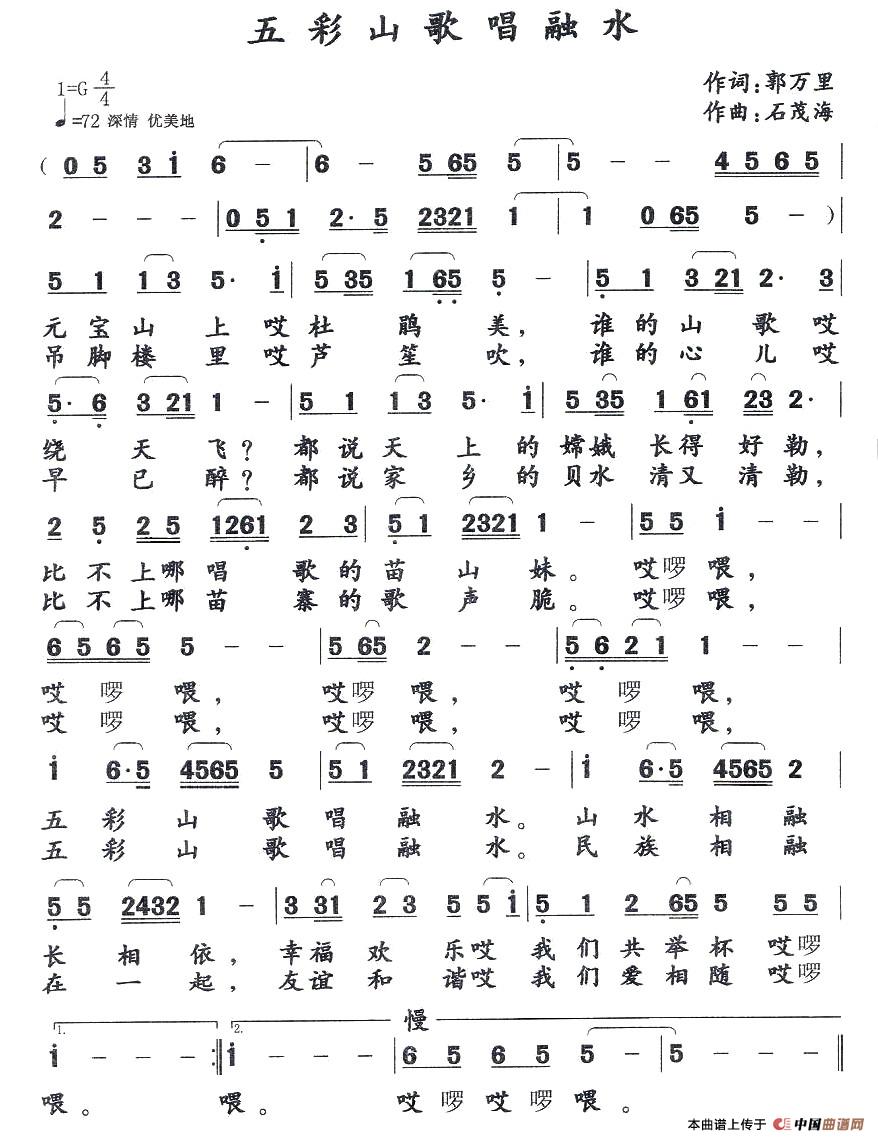 五彩山歌唱融水
1=G 4/4
作词：郭万里
♩=72 深情 优美地
作曲：石茂海
( 0 5 3 i 6 - | 6 - 5 65 5 | 5 - - 4565 |
2 - - - | 0 5 1 2· 5 2321 1 | 1 0 65 5 - ) |
5 1 1 3 5· i | 5 35 1 65 5 - | 5 1 3 21 2· 3
元宝山上哎杜鹃美，谁的山歌哎
吊脚楼里哎芦笙吹，谁的心儿哎
5· 6 3 21 1 - | 5 1 1 3 5· i | 5 35 1 61 23 2·
绕天飞？都说天上的嫦娥长得好勒，
早已醉？都说家乡的贝水清又清勒，
2 5 2 5 1261 2 3 | 5 1 2321 1 - | 5 5 i - |
比不上哪唱歌的苗山妹。哎啰喂，
比不上哪苗寨的歌声脆。哎啰喂，
6 5 6 5 5 - - | 5 65 2 - - | 5 6 2 1 1 - - |
哎啰喂，哎啰喂，哎啰喂，
哎啰喂，哎啰喂，哎啰喂，
i 6·5 4565 5 | 5 1 2321 2 - | i 6·5 4565 2
五彩山歌唱融水。山水相融
五彩山歌唱融水。民族相融
5 5 2432 1 - | 3 31 2 3 5 5 i | 5 1 2 65 5 5 5 |
长相依，幸福欢乐哎我们共举杯哎啰
在一起，友谊和谐哎我们爱相随哎啰
1. 2. 慢
i - - - :| i - - - | 6 5 6 5 5 - | 5 - - - ‖
喂。喂。哎啰哎啰喂。
本曲谱上传于 中国曲谱网